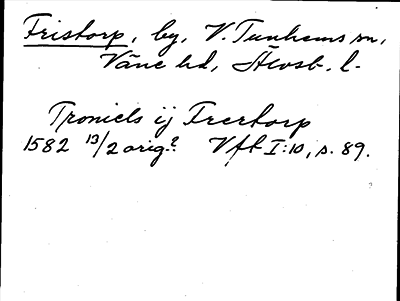 Fristorp, by, V. Tunhems sn,
Väne hd, Älvsb. l.
Troniels ij Frertorp
1582 13/2 orig.? Vft I:10, s. 89.